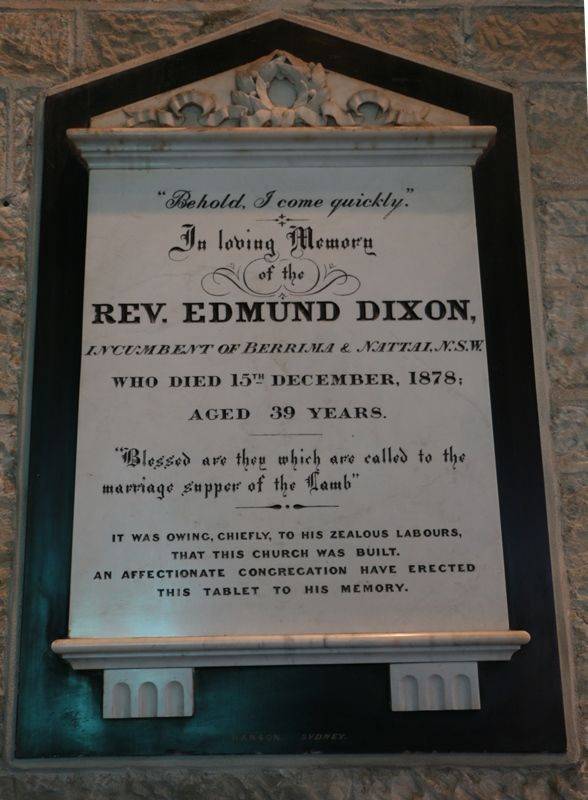 "Behold, I come quickly."
In loving Memory
of the
REV. EDMUND DIXON,
INCUMBENT OF BERRIMA & NATTAI, N.S.W.
WHO DIED 15TH DECEMBER, 1878;
AGED 39 YEARS.
"Blessed are they which are called to the
marriage supper of the Lamb"
IT WAS OWING, CHIEFLY, TO HIS ZEALOUS LABOURS,
THAT THIS CHURCH WAS BUILT.
AN AFFECTIONATE CONGREGATION HAVE ERECTED
THIS TABLET TO HIS MEMORY.
HANSON. SYDNEY.